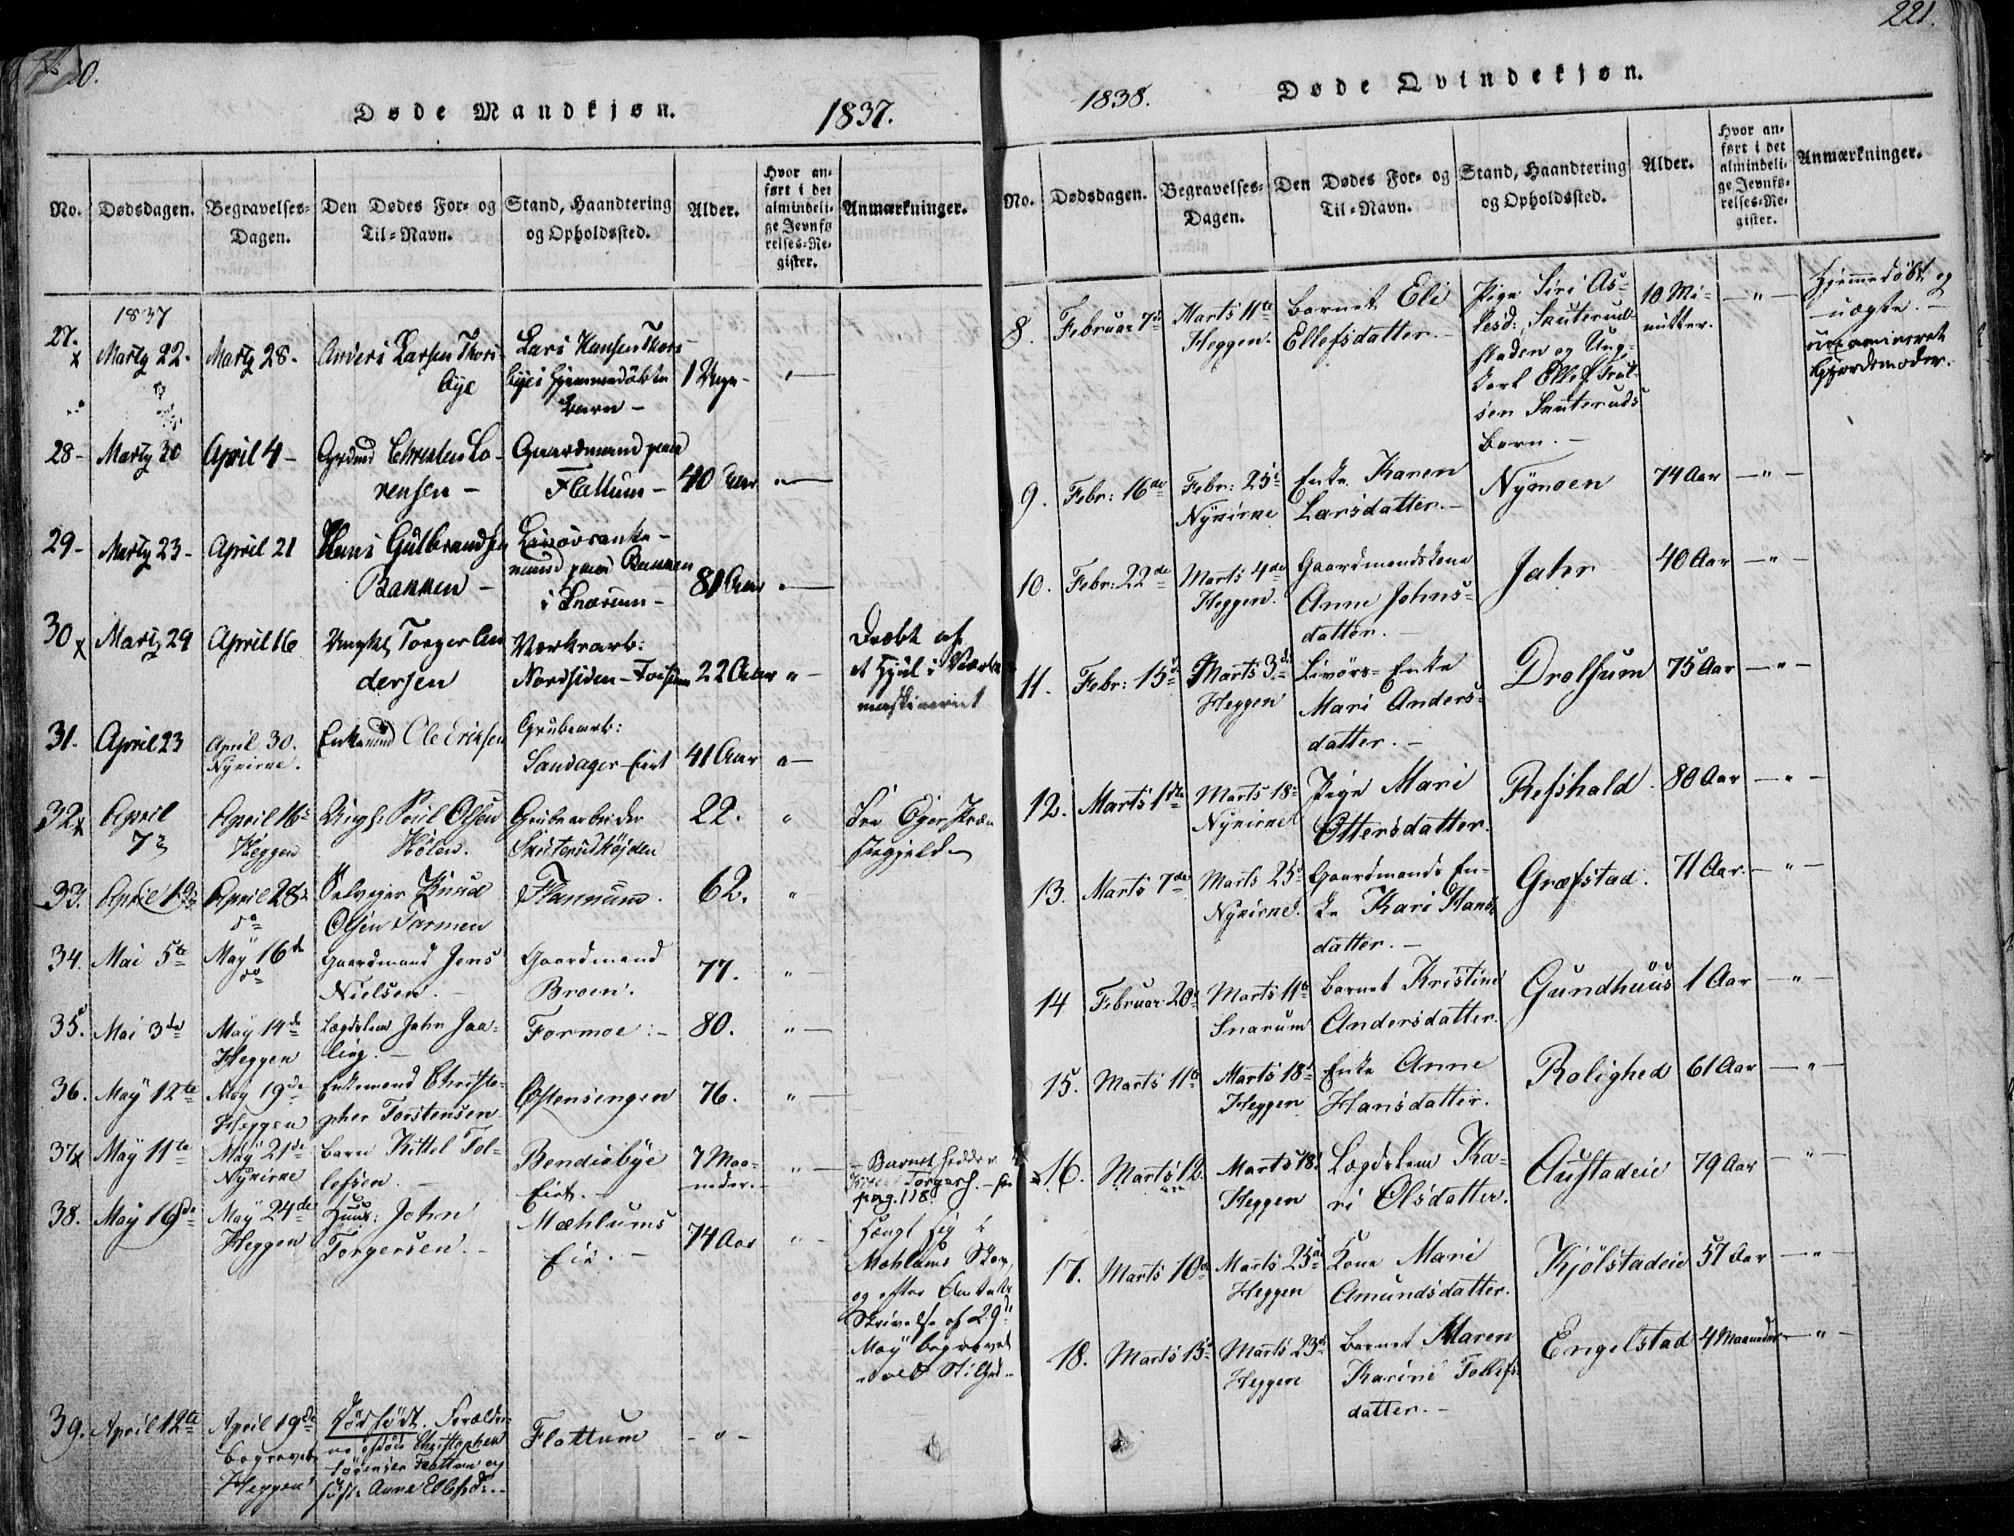 Døde Mandkjøn.
1837.
No.
Dødsdagen.
Begravelses-
Dagen.
Den Dødes For- og
Til-Navn.
Stand, Haandtering
og Opholdssted.
Alder.
Hvor an-
ført i det
almindeli-
ge Jevnfø-
relses-Re-
gister.
Anmærkninger.
1837
27. x
Marty 22.
Marty 28.
Anders Larsen Thors
bye
Lars Hansen Thors-
byes hjemmedøbte
Barn -
1 Uge -
28 -
Marty 30
April 4 -
Grdmd Christen Lo-
rensen -
Gaardmand paa
Flattum -
40 Aar
29 -
Marty 23 -
April 21
Hans Gulbrandsen
Bakken -
Livørsenke-
mand paa Bakken
i Snarum -
81 Aar
30 x
Marty 29
April 16
Ungkl Torger An
dersen
Værksarb:
Nordsiden - Fossum
22 Aar
"
Dræbt af
et Hjul i Værks
maskineriet
31.
April 23
April 30.
Nykirne.
Enkemd Ole Eriksen
Grubearb:
Sandager-Eiet
41 Aar
32 x
April
7de
April 16
Heggen
Ungk. Poul Olsen
Hølen.
Grubearbeider
Skuterudhøjden
22.
"
Fra Eger Præ-
stegjeld
33.
April 19
April 28
do
Selveyer Knud
Olsen Formen
Flannum.
62.
"
34.
Mai 5te
May 16d
do
Gaardmand Jens
Nielsen. -
Gaardmand
Broen.
77.
"
35.
Mai 3de
May 14de
Heggen
Lægdslem John Jaa-
ling. -
Formoe: -
80.
"
36.
May 12te
May 19de
Heggen
Enkemand Christo-
pher Torstensen
Østensengen
76.
"
37 x
May 11te
May 21de
Nykirne
barn Kittel Tol-
lefsen. -
Bendiebye
Eiet. -
7 Maa-
neder. -
"
- Barnet hedder
Kittel Torgers. - see
pag. 118.
38.
May 16de
May 24de
Heggen
Huus: John
Torgersen. -
Mæhlums
Eie. -
74 Aar
"
Hængt sig i
Mæhlums Skov,
og efter Amtets
Skrivelse af 29de
May begravet
i al Stilhed -
39.
April 12te
April 19de
begravet
Heggen
Dødfødt. Forældre-
ne Christophen
Sørensen Flattum og
Anne Ellefsd: -
Flattum
- " -
221.
1838.
Døde Qvindekjøn.
No.
Dødsdagen.
Begravelses-
Dagen.
Den Dødes For- og
Til-Navn.
Stand, Haandtering
og Opholdssted.
Alder.
Hvor an-
ført i det
almindeli-
ge Jevnfø-
relses-Re-
gister.
Anmærkninger.
8.
Februar 7de
Marts 11te
Heggen.
Barnet Eli
Ellefsdatter. -
Pige Siri As-
lesd: Skuterud-
staden og Ung-
karl Ellef Truls-
sen Skuteruds
Barn. -
10 Mi-
nutter.
- " -
Hjemmedøbt og
uægte. -
uexamineret
Gjordemoder.
9.
Febr: 16de
Febr: 25de
Nykirne
Enke Karen
Larsdatter. -
Nymoen
74 Aar
- " -
10.
Febr: 22de
Marts 4de
Heggen.
Gaardmandskone
Anne Johns-
datter. -
Jahr
40 Aar
- " -
11.
Febr: 15de
Marts 3de
Heggen
Livørs-Enke
Mari Anders-
datter. -
Drolsum
75 Aar
- " -
12.
Marts 1ste
Marts 18de
Nykirne
Pige Mari
Ottersdatter.
Refshald.
80 Aar
- " -
13.
Marts 7de
Marts 25de
Nykirne.
Gaardmands En-
ke Kari Hans-
datter. -
Græfstad.
71 Aar.
- " -
14
Februar 20de
Marts 11te
Snarum
Barnet Kristine
Andersdatter.
Gundhuus
1 Aar
- " -
15.
Marts 11te
Marts 18de
Heggen
Enke Anne
Hansdatter.
Rolighed
61 Aar
- " -
16.
Marts 12
Marts 18de
Heggen
Lægdslem Ka-
ri Olsdatter.
Austadeie
79 Aar
- " -
17.
Marts 10de
Marts 25de
Heggen
Kone Mari
Amundsdatter.
Kjølstadeie
57 Aar
- " -
18.
Marts 15de
Marts 23de
Heggen
Barnet Maren
Karine Tollefs-
datter. -
Engelstad
4 Maaneder
- " -